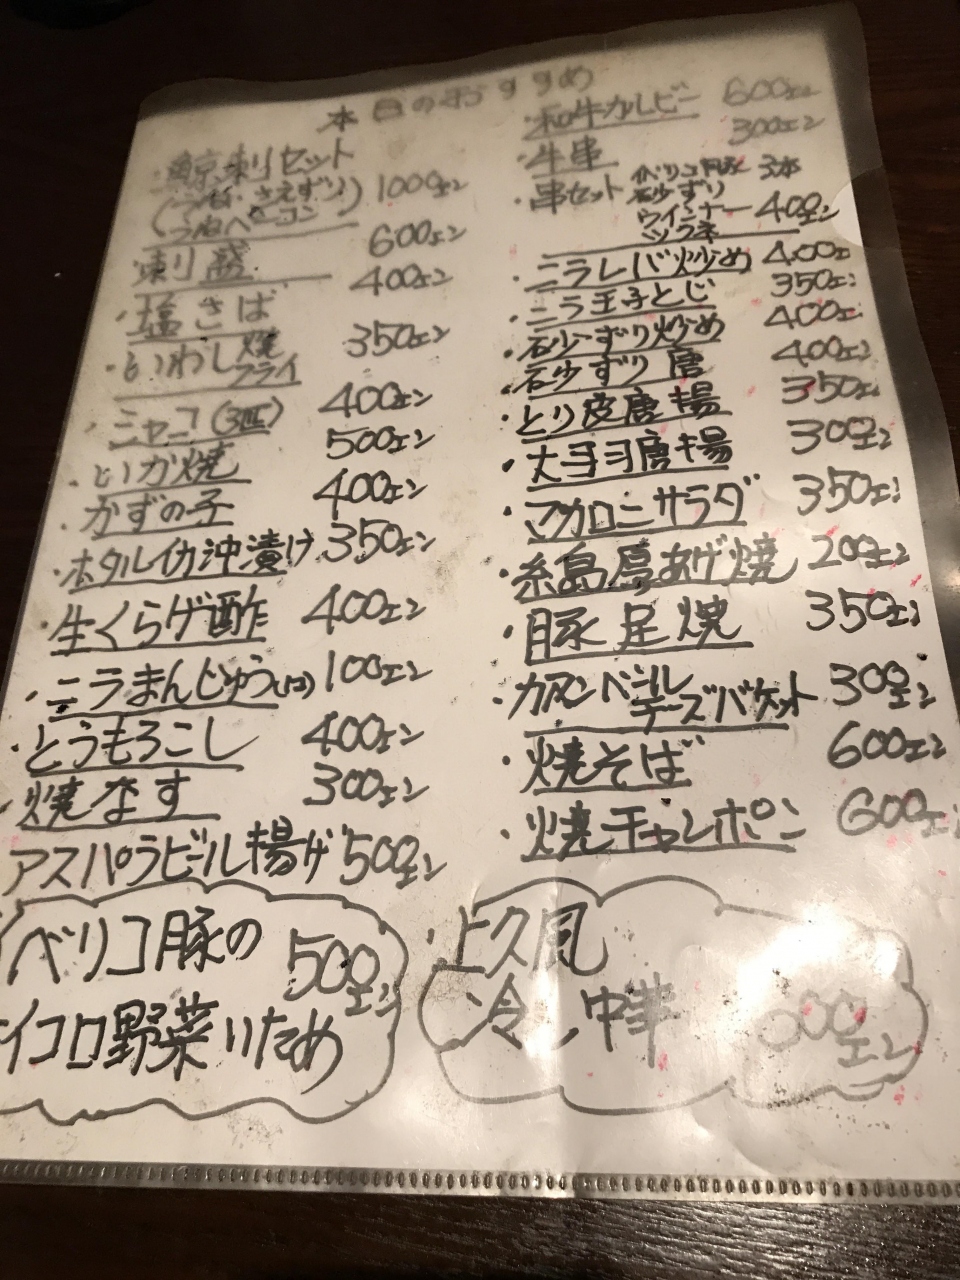 本日のおすすめ
・鯨刺セット
(さえずり
うねベーコン) 1000エン
刺盛 600エン
・塩さば 400エン
・といわし焼
フライ 350エン
・ミャコ(3匹) 400エン
・といか焼 500エン
・かずの子 400エン
・ホタルイカ沖漬け 350エン
・生くらげ酢 400エン
・ニラまんじゅう(1コ) 100エン
・とうもろこし 400エン
・焼なす 300エン
アスパラビール揚げ 500エン
ベリコ豚の
イコロ野菜いため 500エン
・和牛カルビー 600エン
・牛串 300エン
・串セット イベリコ豚 3本
砂ずり
ウインナー
ツクネ 400エン
・ニラレバ炒め 400エン
・ニラ玉子とじ 350エン
・砂ずり炒め 400エン
・砂ずり唐 400エン
・とり皮唐揚 350エン
・大手羽唐揚 300エン
・マカロニサラダ 350エン
・糸島厚あげ焼 200エン
・豚足焼 350エン
・カマンベール
チーズバケット 300エン
・焼そば 600エン
・焼チャンポン 600エン
・上久風
冷し中華 600エン